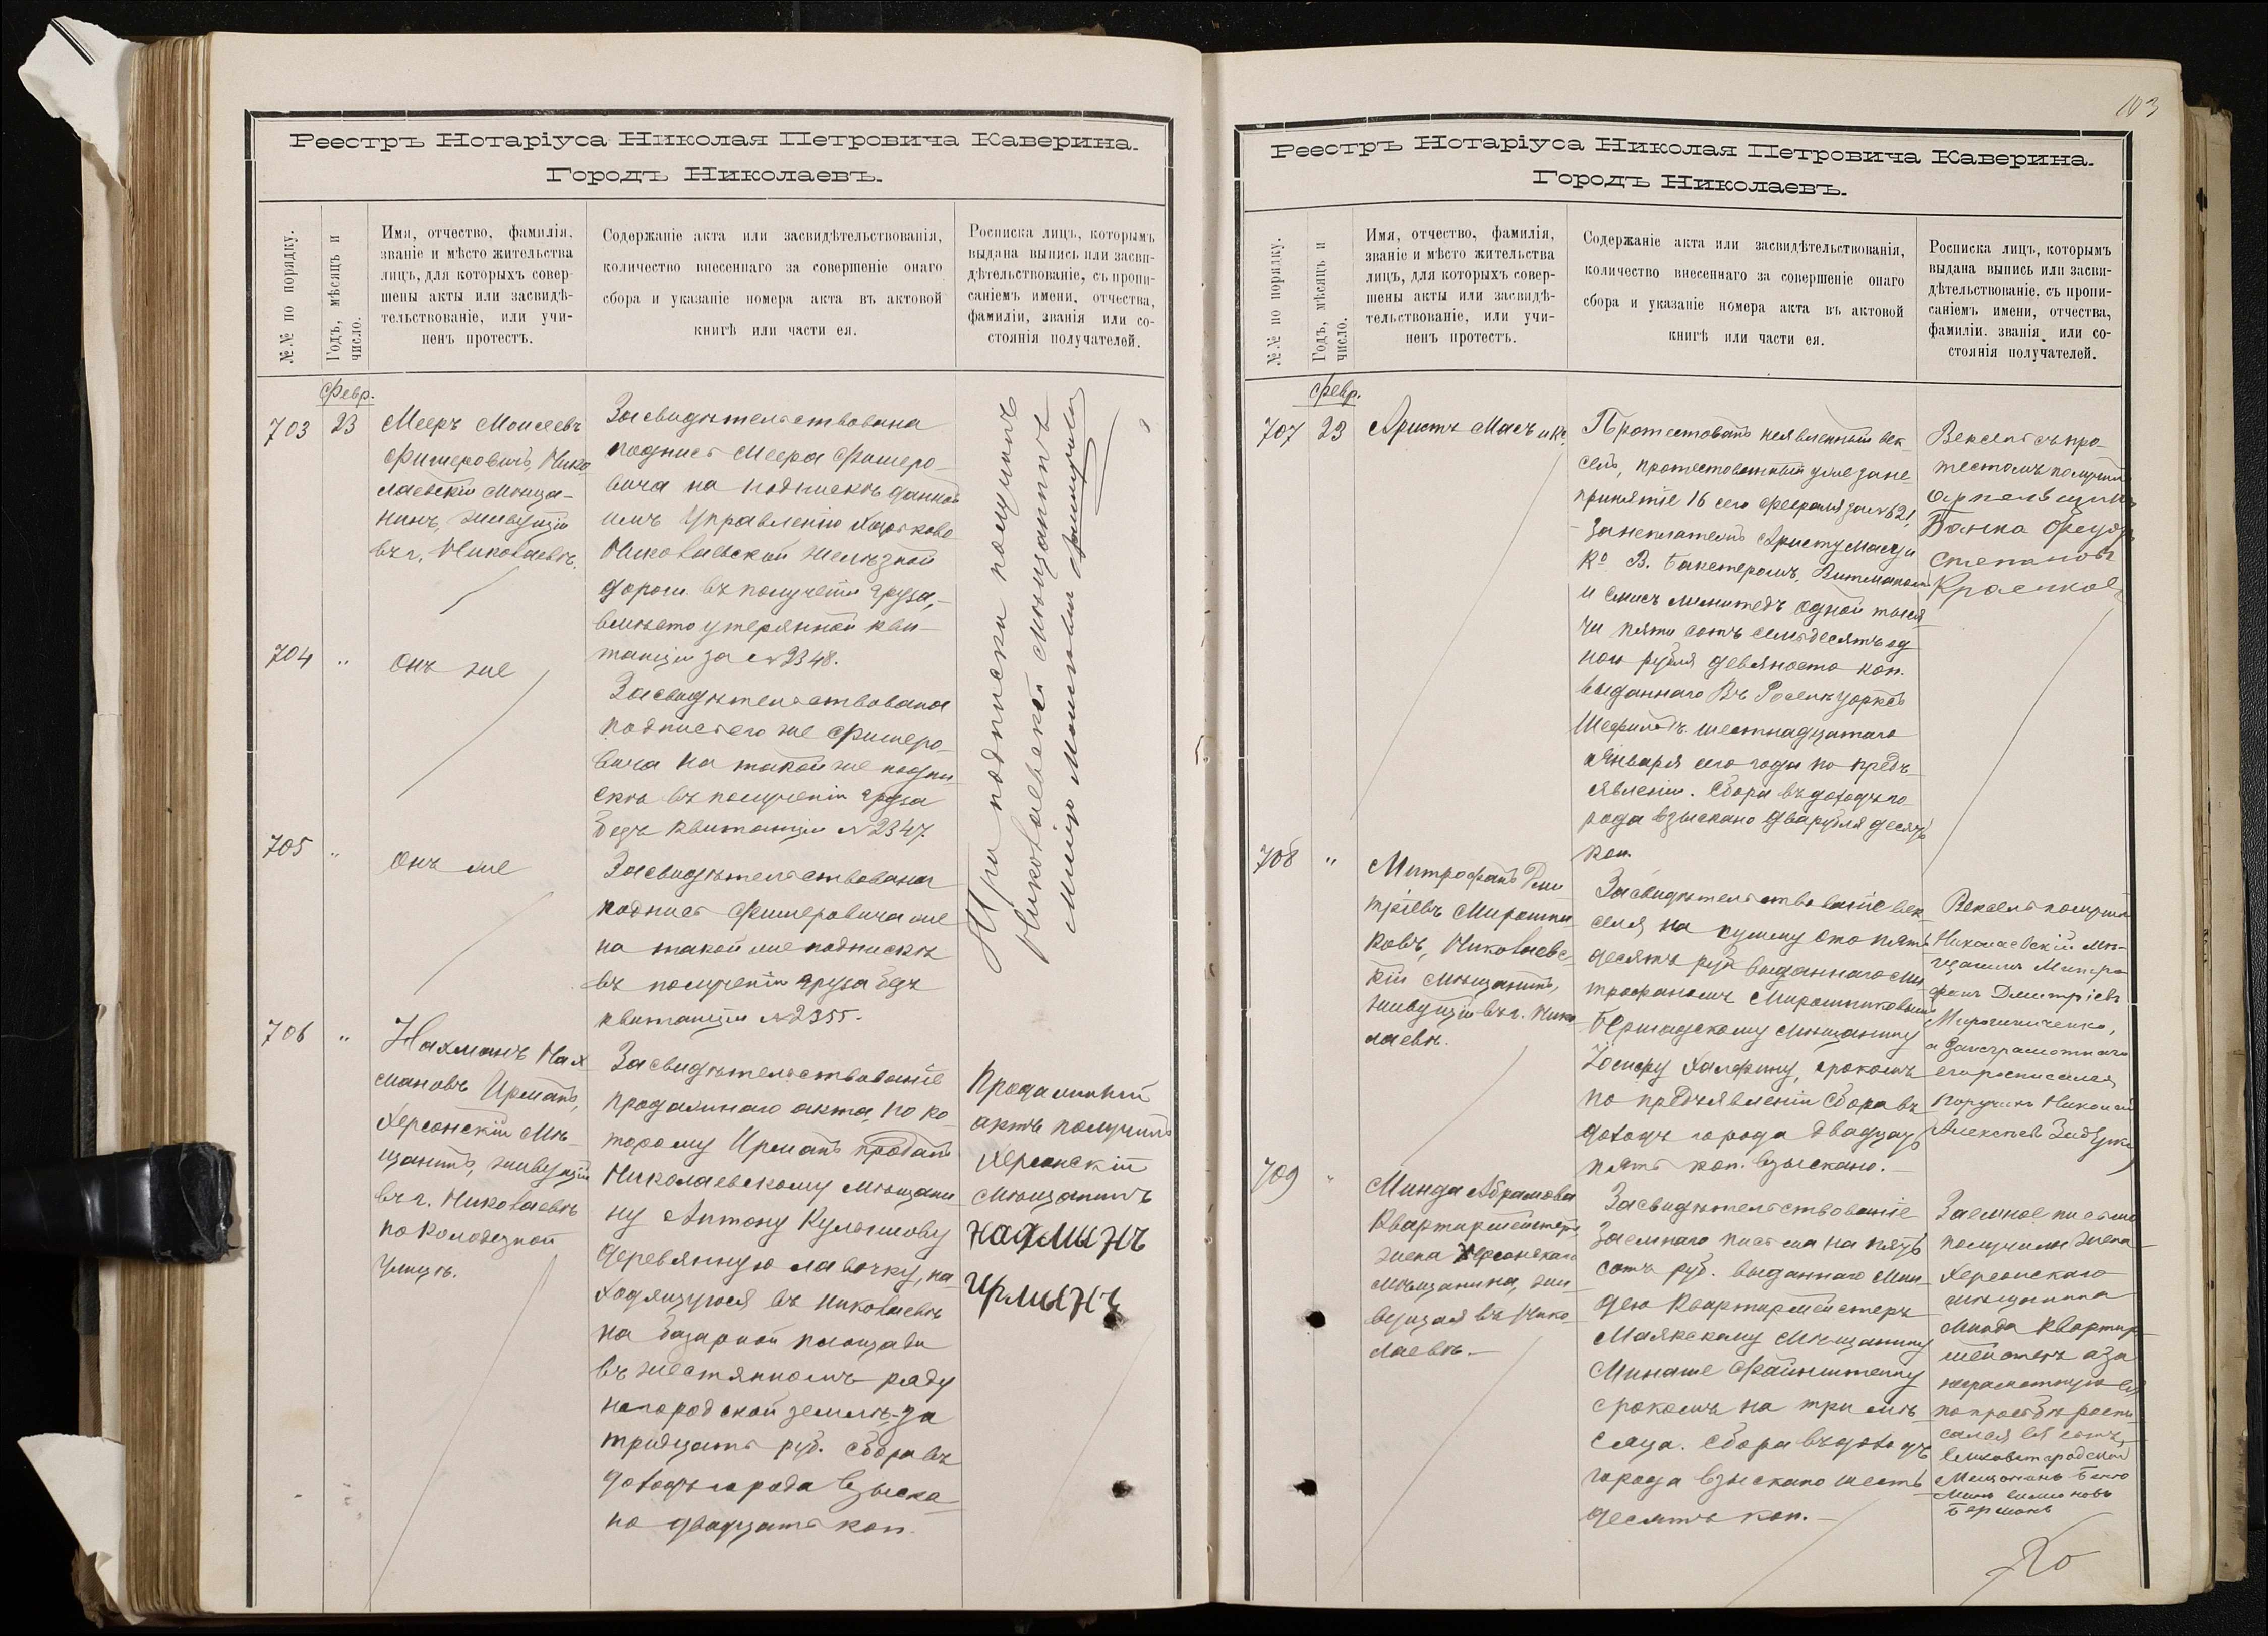 Реестръ Нотаріуса Николая Петровича Каверина.
Городъ Николаевъ.
№.№ по порядку.
Годъ, мѣсяцъ и
число.
Имя, отчество, фамилія,
званіе и мѣсто жительства
лицъ, для которыхъ совер-
шены акты или засвидѣ-
тельствованіе, или учи-
ненъ протестъ.
Содержаніе акта или засвидѣтельствованія,
количество внесеннаго за совершеніе онаго
сбора и указаніе номера акта въ актовой
книгѣ или части ея.
Росписка лицъ, которымъ
выдана выпись или засви-
дѣтельствованіе, съ пропи-
саніемъ имени, отчества,
фамиліи, званія или со-
стоянія получателей.
Февр.
703
23
Мееръ Моисеевъ
Фишеровичъ, Нико
лаевскій мѣща-
нинъ, живущій
въ г. Николаевѣ.
Засвидѣтельствована
подпись Меера Фишеро-
вича на подпискѣ данной
имъ Управленію Харьково
Николаевской желѣзной
дороги въ полученіи груза,
вмѣсто утерянной кви-
танціи за №2348.
Три подписки получилъ
Николаевскій мѣщанинъ
704
"
Онъ же
Засвидѣтельствована
подпись его же Фишеро-
вича на такой же подпи
скѣ въ полученіи груза
безъ квитанціи №2347.
705
"
Онъ же
Засвидѣтельствована
подпись Фишеровича же
на такой же подпискѣ
въ полученіи груза безъ
квитанціи №2355.
706
"
Нахманъ Нах
мановъ Ирманъ,
Херсонскій мѣ-
щанинъ, живущій
въ г. Николаевѣ
по Колодезной
улицѣ.
Засвидѣтельствованіе
продажнаго акта, по ко
торому Ирманъ продалъ
Николаевскому мѣщани
ну Антону Кулешову
деревянную лавочку, на
ходящуюся въ Николаевѣ
на базарной площади
въ жестянномъ ряду
на городской землѣ за
тридцать руб. Сбора въ
доходъ города взыска-
но двадцать коп.
Продажный
актъ получилъ
Херсонскій
мѣщанинъ
Нахманъ
Ирманъ
103
Реестръ Нотаріуса Николая Петровича Каверина.
Городъ Николаевъ.
№.№ по порядку.
Годъ, мѣсяцъ и
число.
Имя, отчество, фамилія,
званіе и мѣсто жительства
лицъ, для которыхъ совер-
шены акты или засвидѣ-
тельствованіе, или учи-
ненъ протестъ.
Содержаніе акта или засвидѣтельствованія,
количество внесеннаго за совершеніе онаго
сбора и указаніе номера акта въ актовой
книгѣ или части ея.
Росписка лицъ, которымъ
выдана выпись или засви-
дѣтельствованіе, съ пропи-
саніемъ имени, отчества,
фамиліи, званія или со-
стоянія получателей.
Февр.
707
23
Аристъ Масъ и Ко.
Протестованъ неявленный век
сель, протестованный уже за не
принятіе 16 сего февраля за №621,
за неплатежъ Аристу Масу и
Ко В. Бакстеромъ, Витманомъ
и Смисъ Лимитедъ одной тыся
чи пяти сотъ семьдесятъ од
ного рубля девяносто коп.
выданнаго въ
Шефильдъ шестнадцатаго
Января сего года по предъ-
явленіи. Сбора въ доходъ го
рода взыскано два рубля десять
коп.
Вексель съ про-
тестомъ получилъ
Банка Федоръ
Степановъ
708
"
Митрофанъ Дми
тріевъ Мирошни
ковъ, Николаевс-
кій мѣщанинъ,
живущій въ г. Нико
лаевѣ.
Засвидѣтельствованіе век-
селя на сумму сто пять
десятъ руб. выданнаго Ми
трофаномъ Мирошниковымъ
Бершадскому мѣщанину
Іосифу Халфину, срокомъ
по предъявленіи Сбора въ
доходъ города двадцать
пять коп. взыскано.
Вексель получилъ
Николаевскій мѣ-
щанинъ Митро-
фанъ Дмитріевъ
Мирошниченко,
а за неграмотнаго
его росписался
поручикъ Николай
Алексѣевъ
709
"
Минда Абрамова
Квартирмейстеръ,
жена Херсонскаго
мѣщанина, жи
вущая въ Нико-
лаевѣ.
Засвидѣтельствованіе
заемнаго письма на пять
сотъ руб. выданнаго Мин-
дою Квартирмейстеръ
Маякскому мѣщанину
Минаше Файнштейну
срокомъ на три мѣ
сяца. Сбора въ доходъ
города взыскано шесть
десятъ коп.
Заемное письмо
получила жена
Херсонскаго
мѣщанина
Минда Квартир-
мейстеръ а за
неграмотную ее
по просьбѣ роспи-
сался
мѣщанинъ
Берманъ